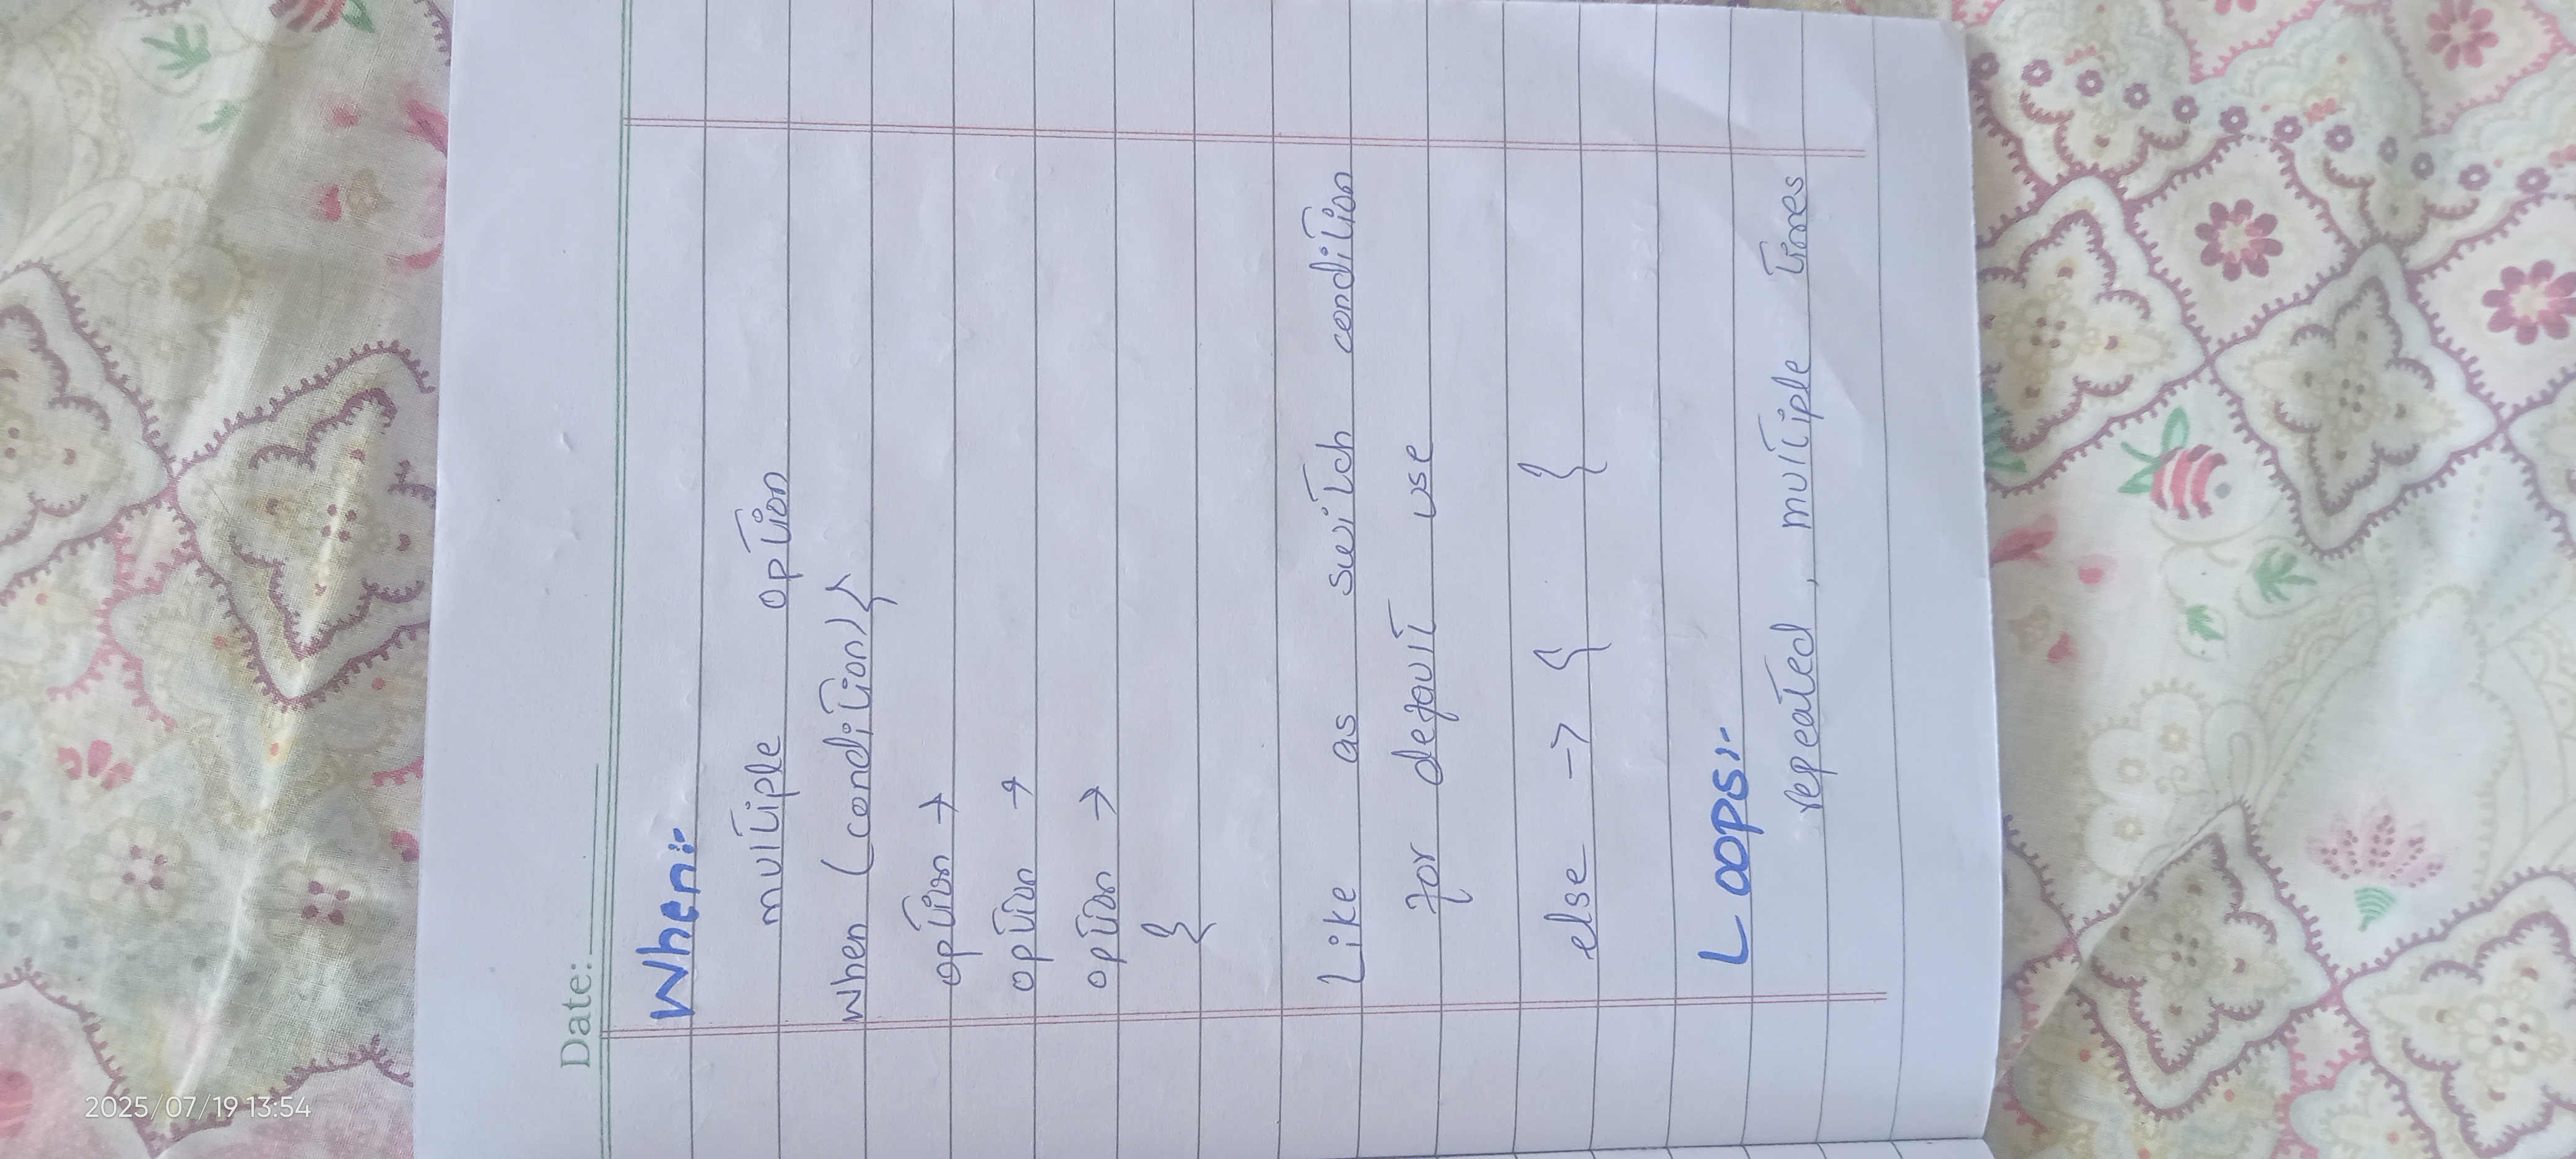 2025/07/19 13:54
Date:
When:-
multiple option
when (condition){
option →
option →
option →
}
Like as switch condition
for default use
else -> { }
Loops:-
repeated, multiple times